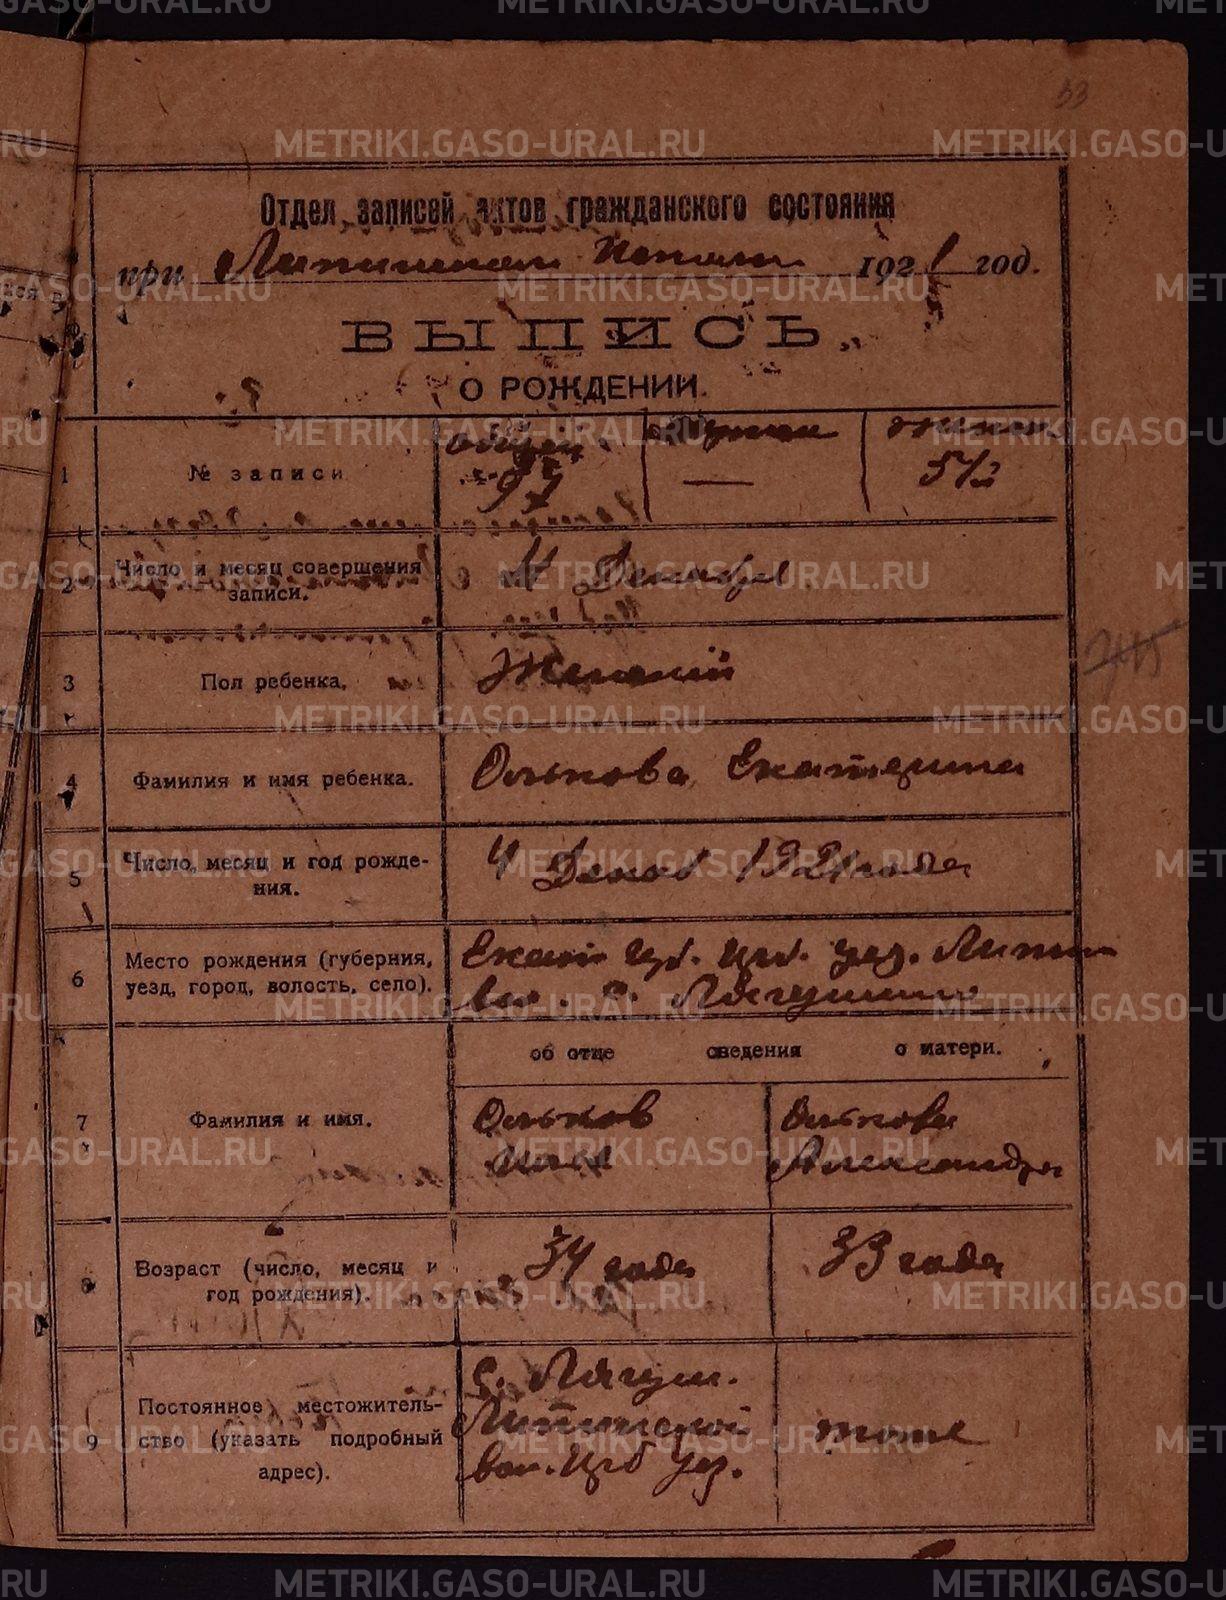 53
Отдел записей актов гражданского состояния
при Липинском 1921 год.
ВЫПИСЬ
О РОЖДЕНИИ.
1 № записи общей 97 мужчин — женщин 51й
2 Число и месяц совершения записи. 11 Декабря
3 Пол ребенка. Женский
4 Фамилия и имя ребенка. Олькова Екатерина
5 Число, месяц и год рожде-
ния. 4 Декаб 1921 года
6 Место рождения (губерния, Екат губ. Шад. уез. Липин
уезд, город, волость, село). вол. с. Лягушино
об отце сведения о матери.
7 Фамилия и имя. Ольков Олькова
Александра
8 Возраст (число, месяц и
год рождения). 34 года 33 года
9 Постоянное местожитель-
ство (указать подробный
адрес).
с. Лягуш.
Липинской
вол. уез.
тоже
METRIKI.GASO-URAL.RU